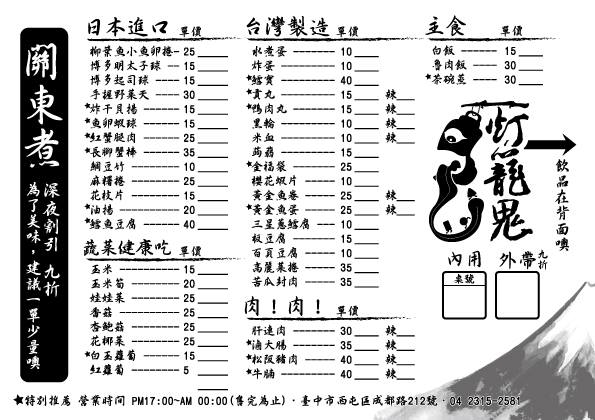 關東煮
深夜割引 九折
為了美味，建議一單少量噢
日本進口 單價
柳葉魚小魚卵捲 25
博多明太子球 15
博多起司球 15
手握野菜天 30
★炸干貝揚 15
★魚卵蝦球 15
★紅蟹腿肉 25
★長腳蟹棒 35
綱豆竹 10
麻糬捲 25
花枝片 15
★油揚 20
★鱈魚豆腐 40
蔬菜健康吃 單價
玉米 15
玉米筍 20
娃娃菜 25
香菇 25
杏鮑菇 25
花椰菜 25
★白玉蘿蔔 15
紅蘿蔔 5
台灣製造 單價
水煮蛋 10
炸蛋 10
★鱈寶 40
★貢丸 15 辣
★鴨肉丸 15 辣
黑輪 10 辣
米血 10 辣
蒟蒻 15
★金福袋 25
櫻花蝦片 10
★黃金魚卷 25 辣
★黃金魚蛋 25 辣
三星蔥鱈腐 10
板豆腐 15
百頁豆腐 10
高麗菜捲 35
苦瓜封肉 35
肉！肉！ 單價
肝連肉 30 辣
★滷大腸 35 辣
★松阪豬肉 40 辣
★牛腩 40 辣
主食 單價
白飯 15
魯肉飯 30
★茶碗蒸 30
灯籠鬼
飲品在背面噢
內用 外帶 九折
桌號
★特別推薦 營業時間 PM17:00~AM 00:00(售完為止)‧臺中市西屯區成都路212號‧04 2315-2581